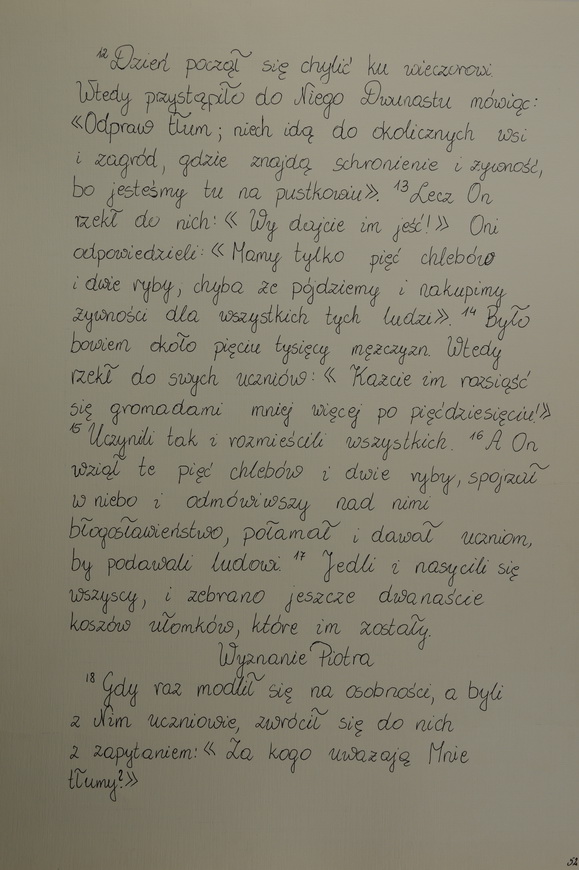 12 Dzień począł się chylić ku wieczorowi.
Wtedy przystąpiło do Niego Dwunastu mówiąc:
«Odpraw tłum; niech idą do okolicznych wsi
i zagród, gdzie znajdą schronienie i żywność,
bo jesteśmy tu na pustkowiu». 13 Lecz On
rzekł do nich: «Wy dajcie im jeść!» Oni
odpowiedzieli: «Mamy tylko pięć chlebów
i dwie ryby, chyba że pójdziemy i nakupimy
żywności dla wszystkich tych ludzi». 14 Było
bowiem około pięciu tysięcy mężczyzn. Wtedy
rzekł do swych uczniów: «Każcie im rozsiąść
się gromadami mniej więcej po pięćdziesięciu!»
15 Uczynili tak i rozmieścili wszystkich. 16 A On
wziął te pięć chlebów i dwie ryby, spojrzał
w niebo i odmówiwszy nad nimi
błogosławieństwo, połamał i dawał uczniom,
by podawali ludowi. 17 Jedli i nasycili się
wszyscy, i zebrano jeszcze dwanaście
koszów ułomków, które im zostały.
Wyznanie Piotra
18 Gdy raz modlił się na osobności, a byli
z Nim uczniowie, zwrócił się do nich
z zapytaniem: «Za kogo uważają Mnie
tłumy?»
52